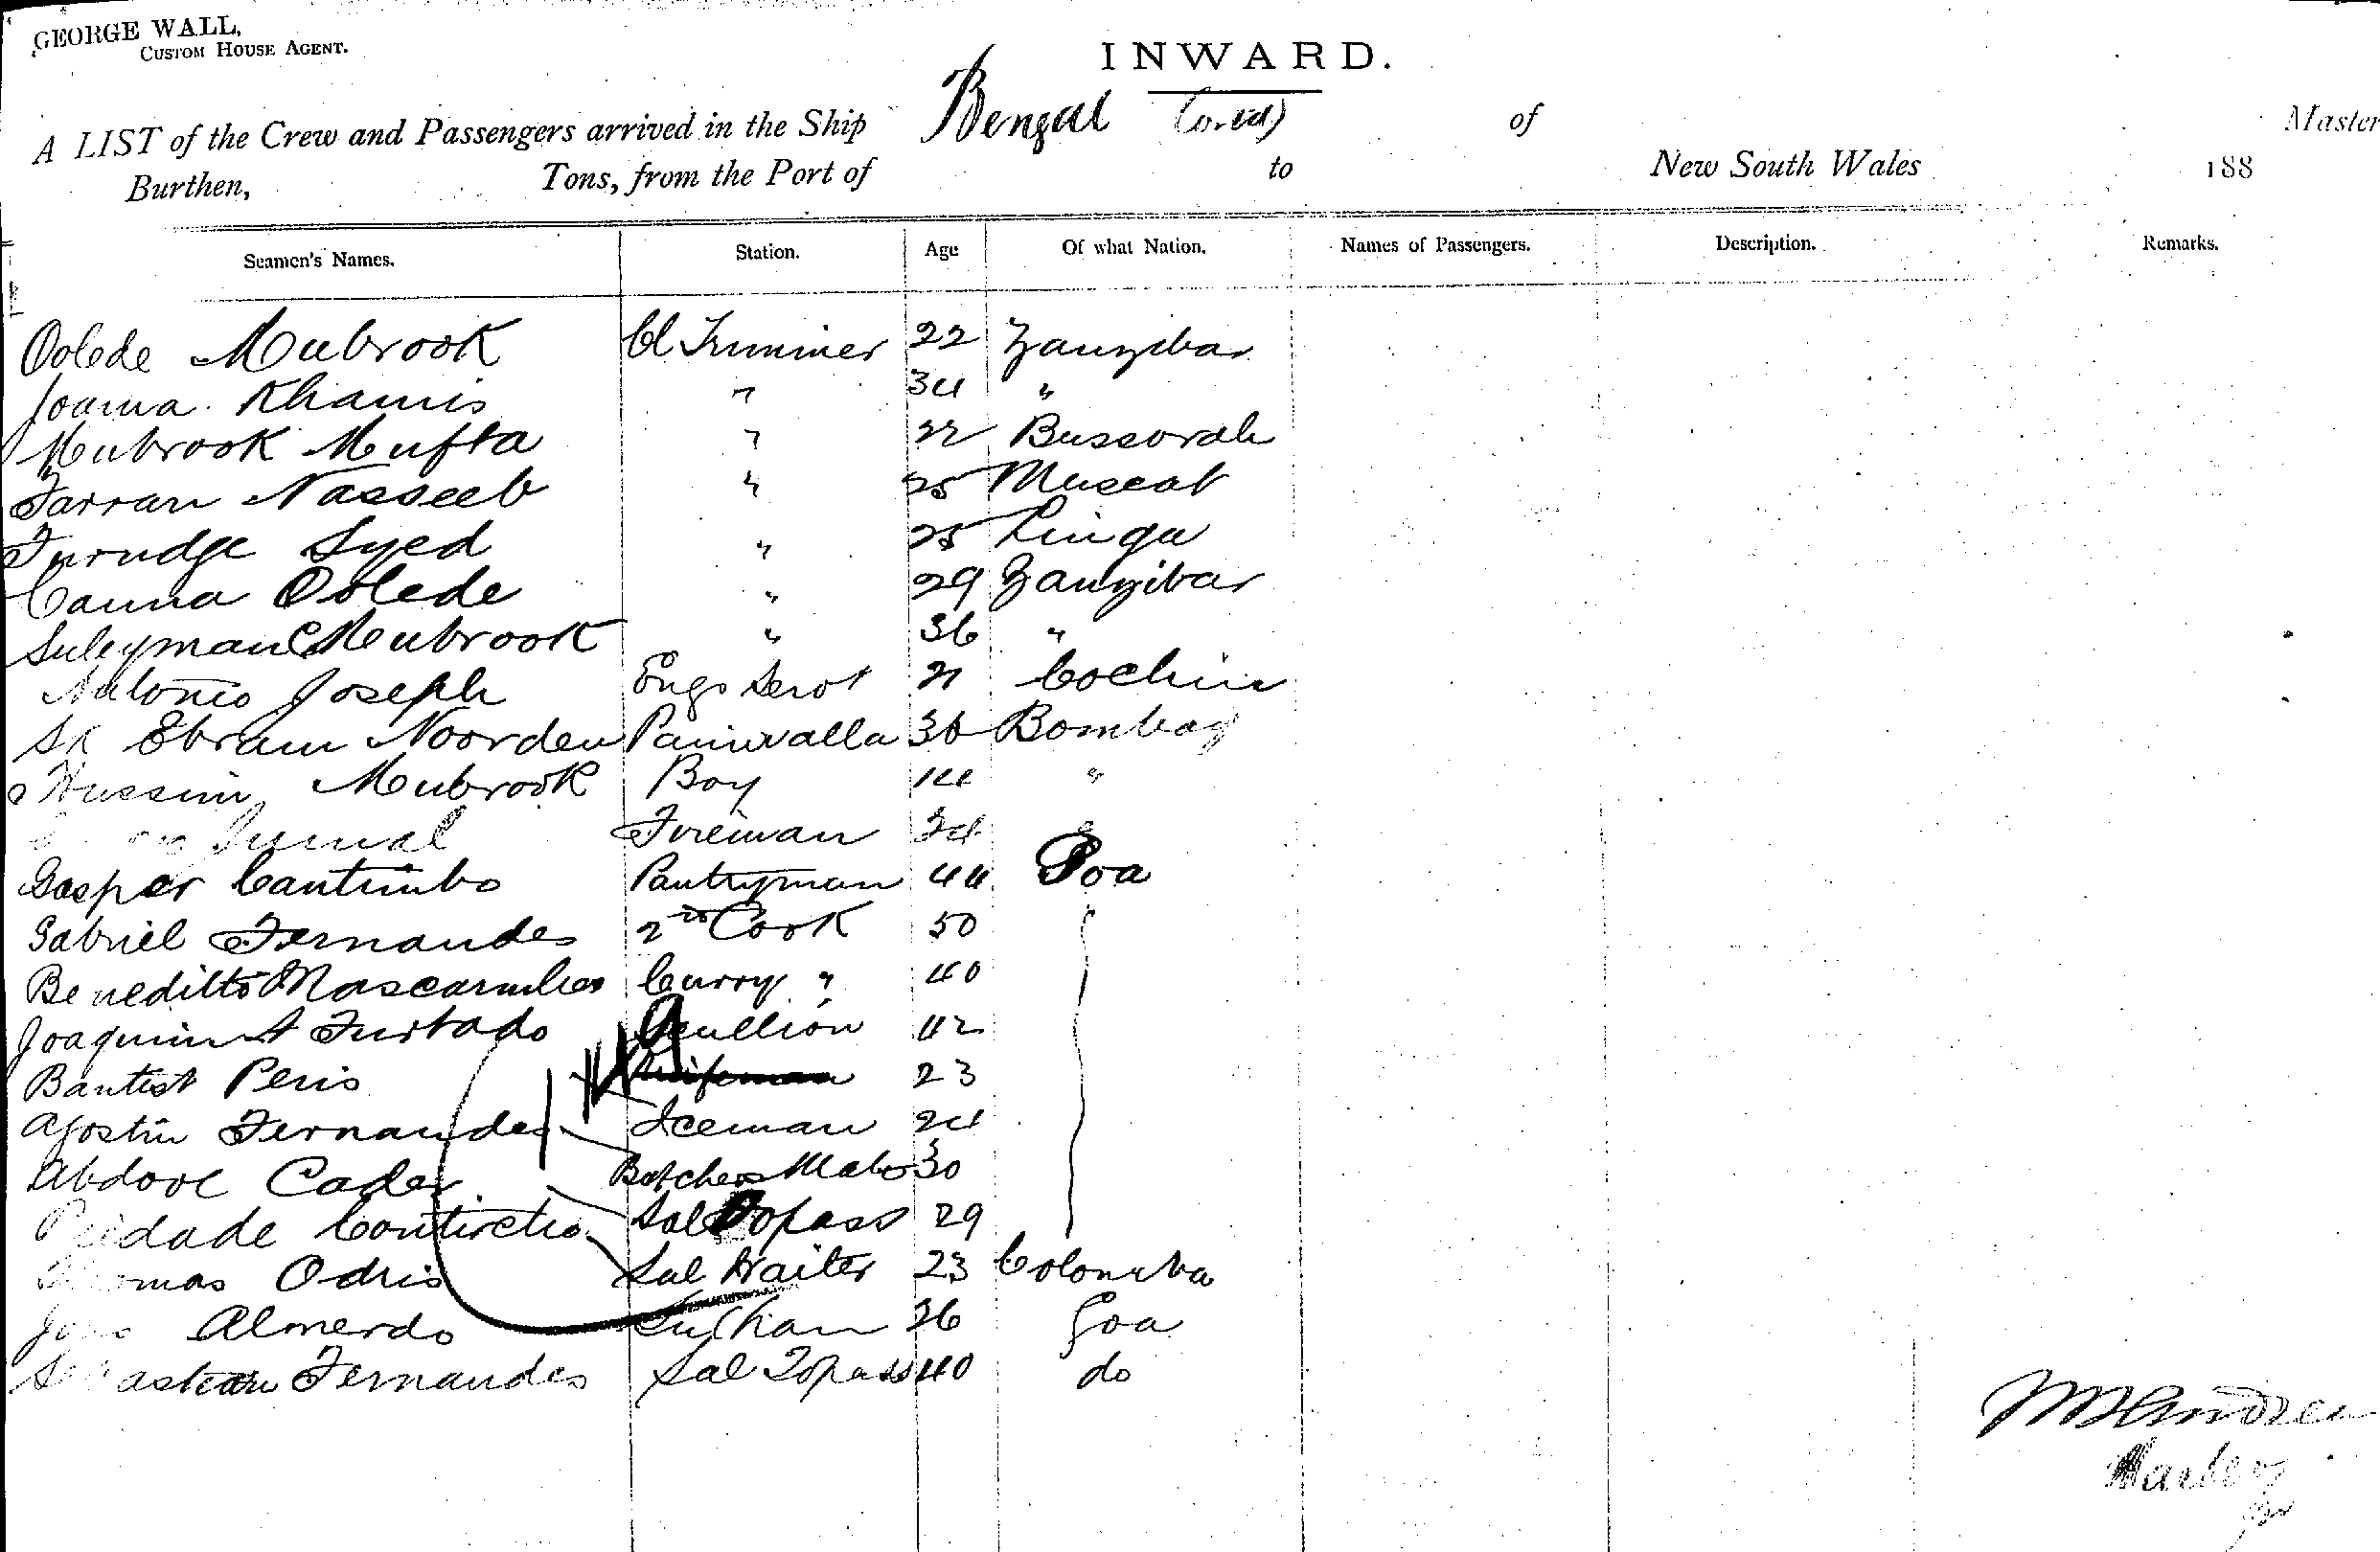 GEORGE WALL,
CUSTOM HOUSE AGENT.
INWARD.
A LIST of the Crew and Passengers arrived in the Ship Bengal of Master
Burthen, Tons, from the Port of to New South Wales 188
Seamen's Names. Station. Age Of what Nation. Names of Passengers. Description. Remarks.
Oolede Mubrook Cl Trimmer 22 Zanzibar
Joama Khamis " 34 "
Mubrook Mufta " 22 Bussorah
Farran Nasseeb " 25 Muscat
Furudge Syed " 25 Linga
Canna Oolede " 29 Zanzibar
Suleyman Mubrook " 36 "
Antonio Joseph Engs Servt 21 Cochin
Sk Ebram Noorden Paniwalla 36 Bombay
Hussein Mubrook Boy 14 "
Fireman 34 "
Gasper Cantimbo Pantryman 44 Goa
Gabriel Fernandes 2nd Cook 50
Beneditto Mascarnhes Curry " 40
Joaquim A Furtado Scullion 42
Bautist Peris 23
Agostin Fernandes Iceman 24
Abdool Cader Butchers Mate 30
Piedade Sal Topass 29
Thomas Odris Sal Waiter 23
Almerdo 26 Goa
Sebastian Fernandes Sal Topass 40 do
Master